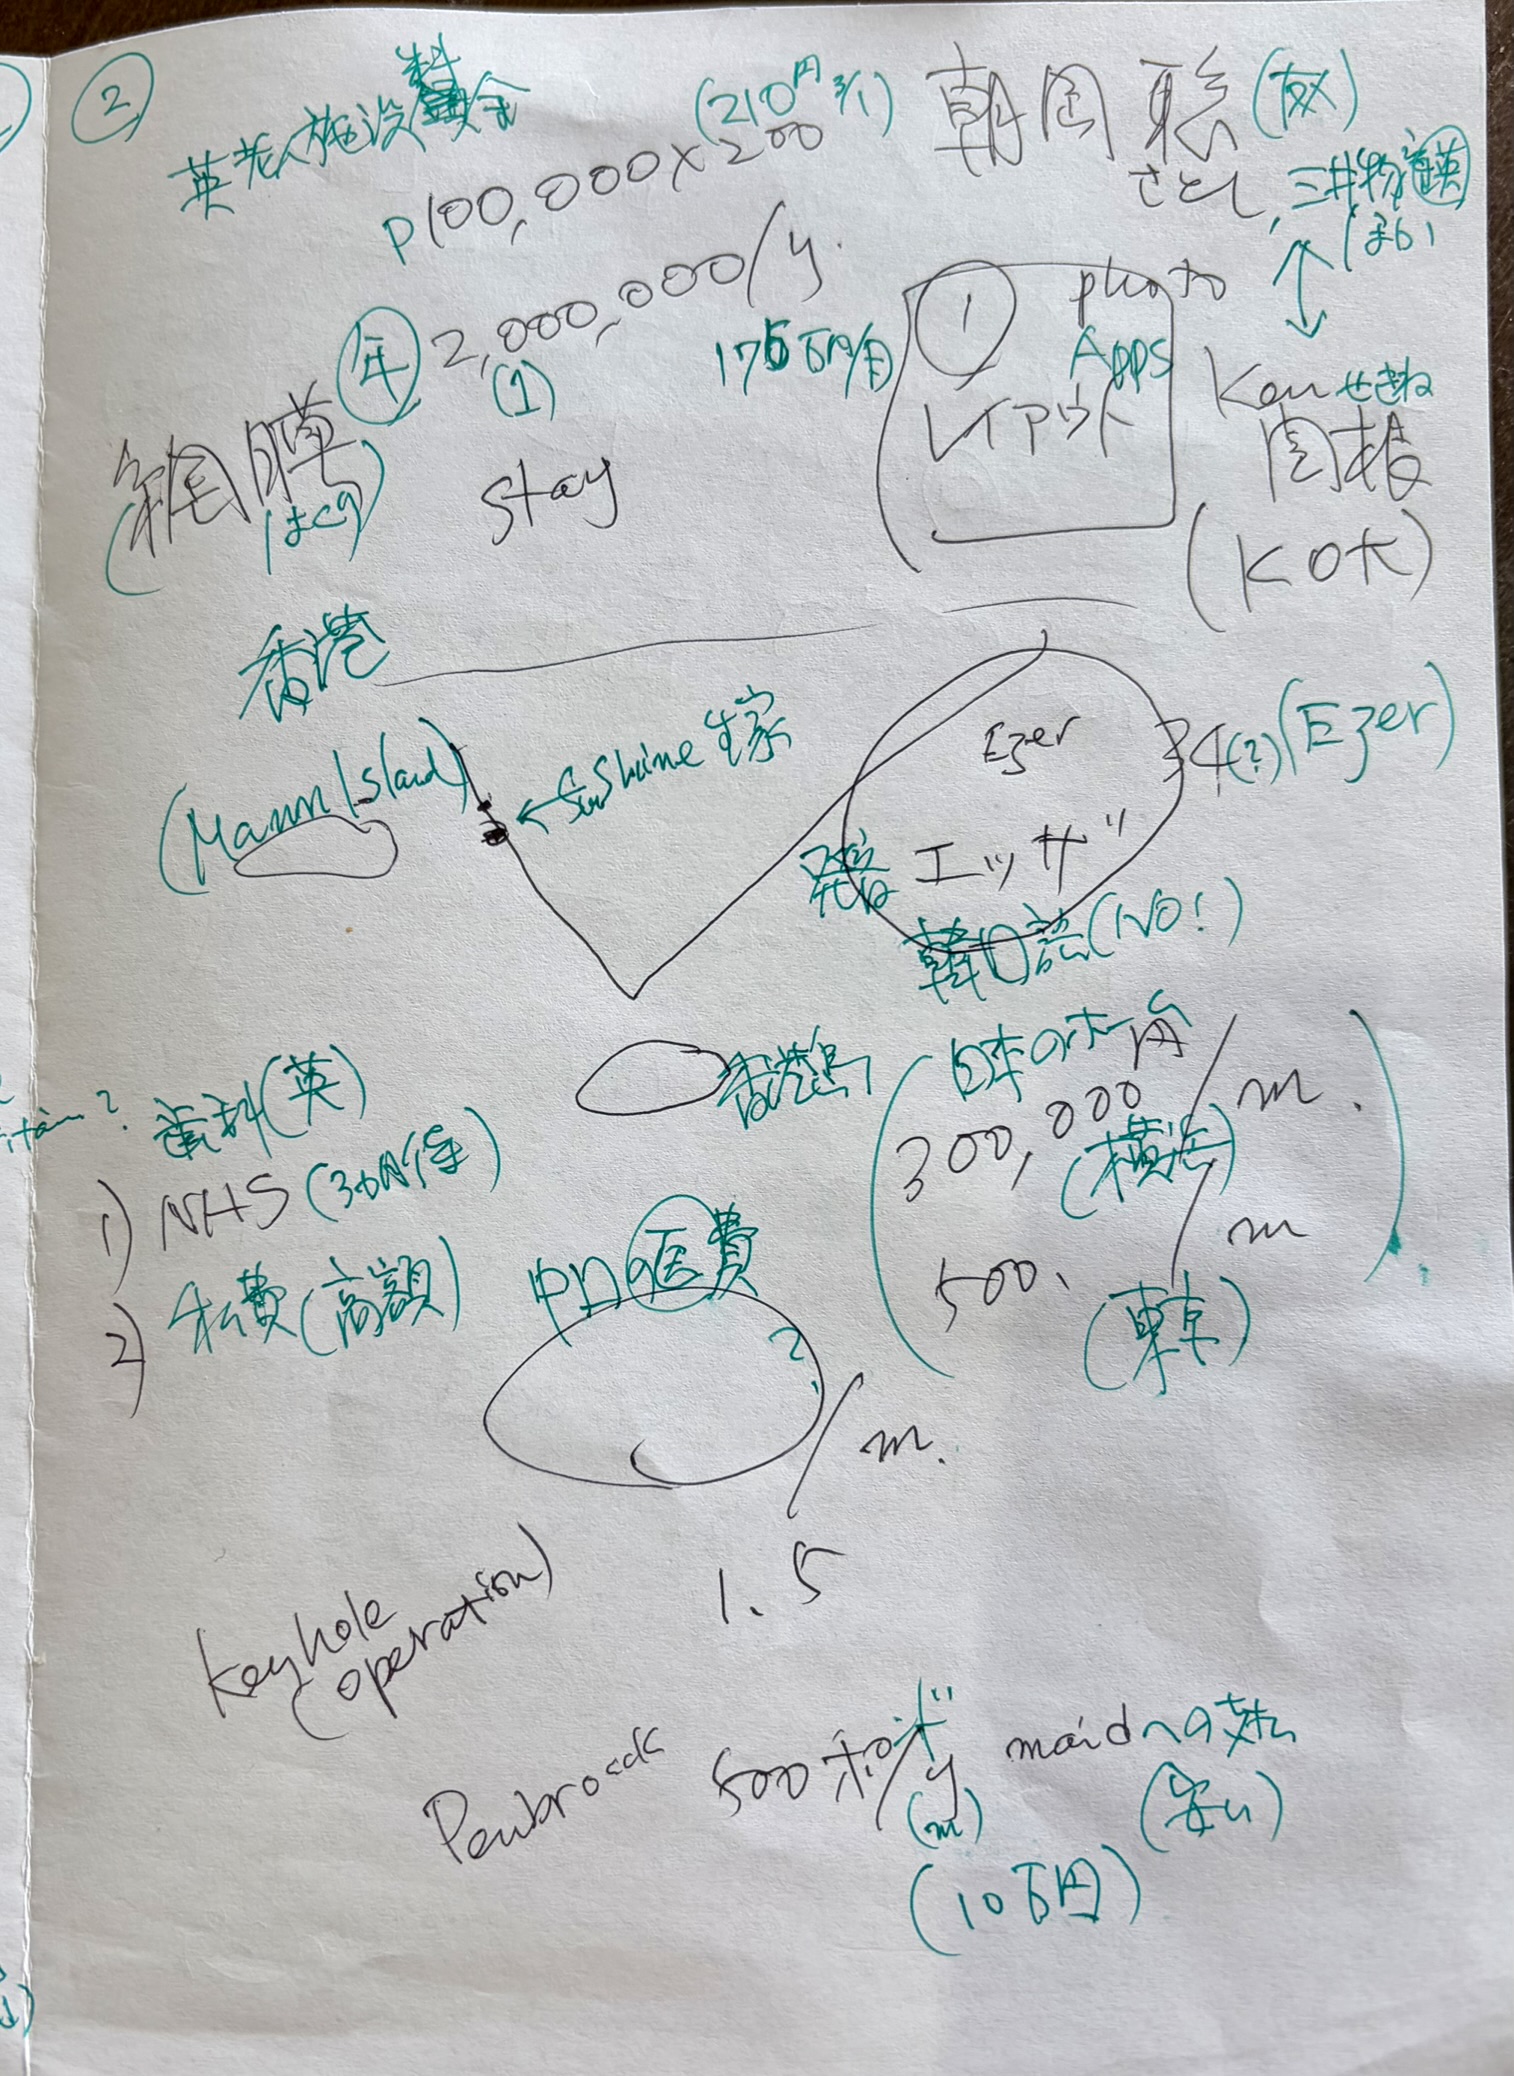 ②
英老人施設料金
(210円
P100,000×200
年 2,000,000/y.
(1)
175万円/月
stay
網膜
(はくり)
朝岡 聡 (友)
さとし
三井物産英
photo
1
Apps
レイアウト
Ken せきね
関根
(KOK)
香港
(Mann Island)
←Sunshine 生家
Ezer
34(?) (Ezer)
発音 エッザ
韓日語(NO!)
香港島
歯科(英)
1) NHS (3ヵ月待)
2) 私費(高額)
日本のホーム
300,000円/m.
(横浜)
500.
/m
(東京)
中口の医費
2.
/m.
1.5
Keyhole
(operation)
Penbrock 500ポンド/y maidへの支払
(m) (安い)
(10万円)